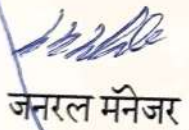 जनरल मॅनेजर